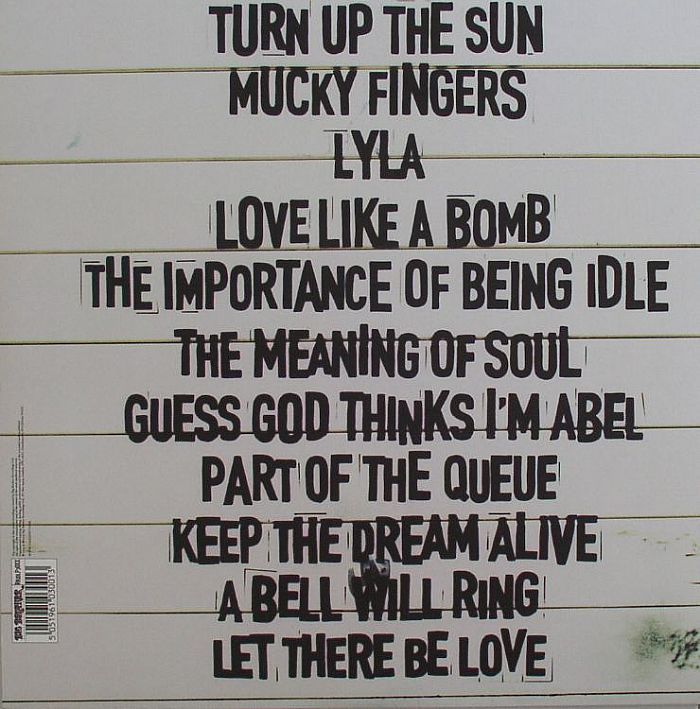 TURN UP THE SUN
MUCKY FINGERS
LYLA
LOVE LIKE A BOMB
THE IMPORTANCE OF BEING IDLE
THE MEANING OF SOUL
GUESS GOD THINKS I'M ABEL
PART OF THE QUEUE
KEEP THE DREAM ALIVE
A BELL WILL RING
LET THERE BE LOVE
5 051961 030013